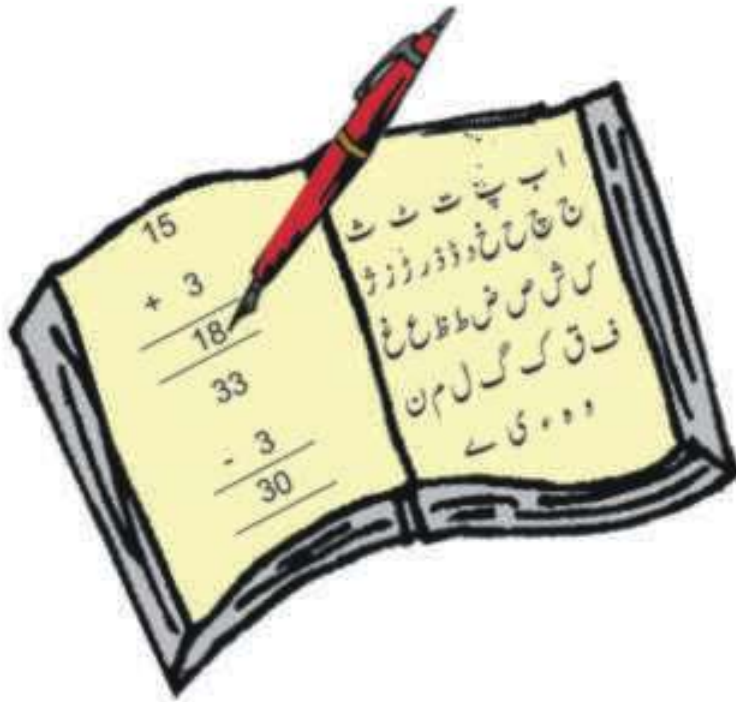 15
+ 3
18
33
- 3
30
ا ب پ ت ٹ ث
ج چ ح خ د ڈ ذ ر ڑ ز ژ
س ش ص ض ط ظ ع غ
ف ق ک گ ل م ن
و ہ ء ی ے